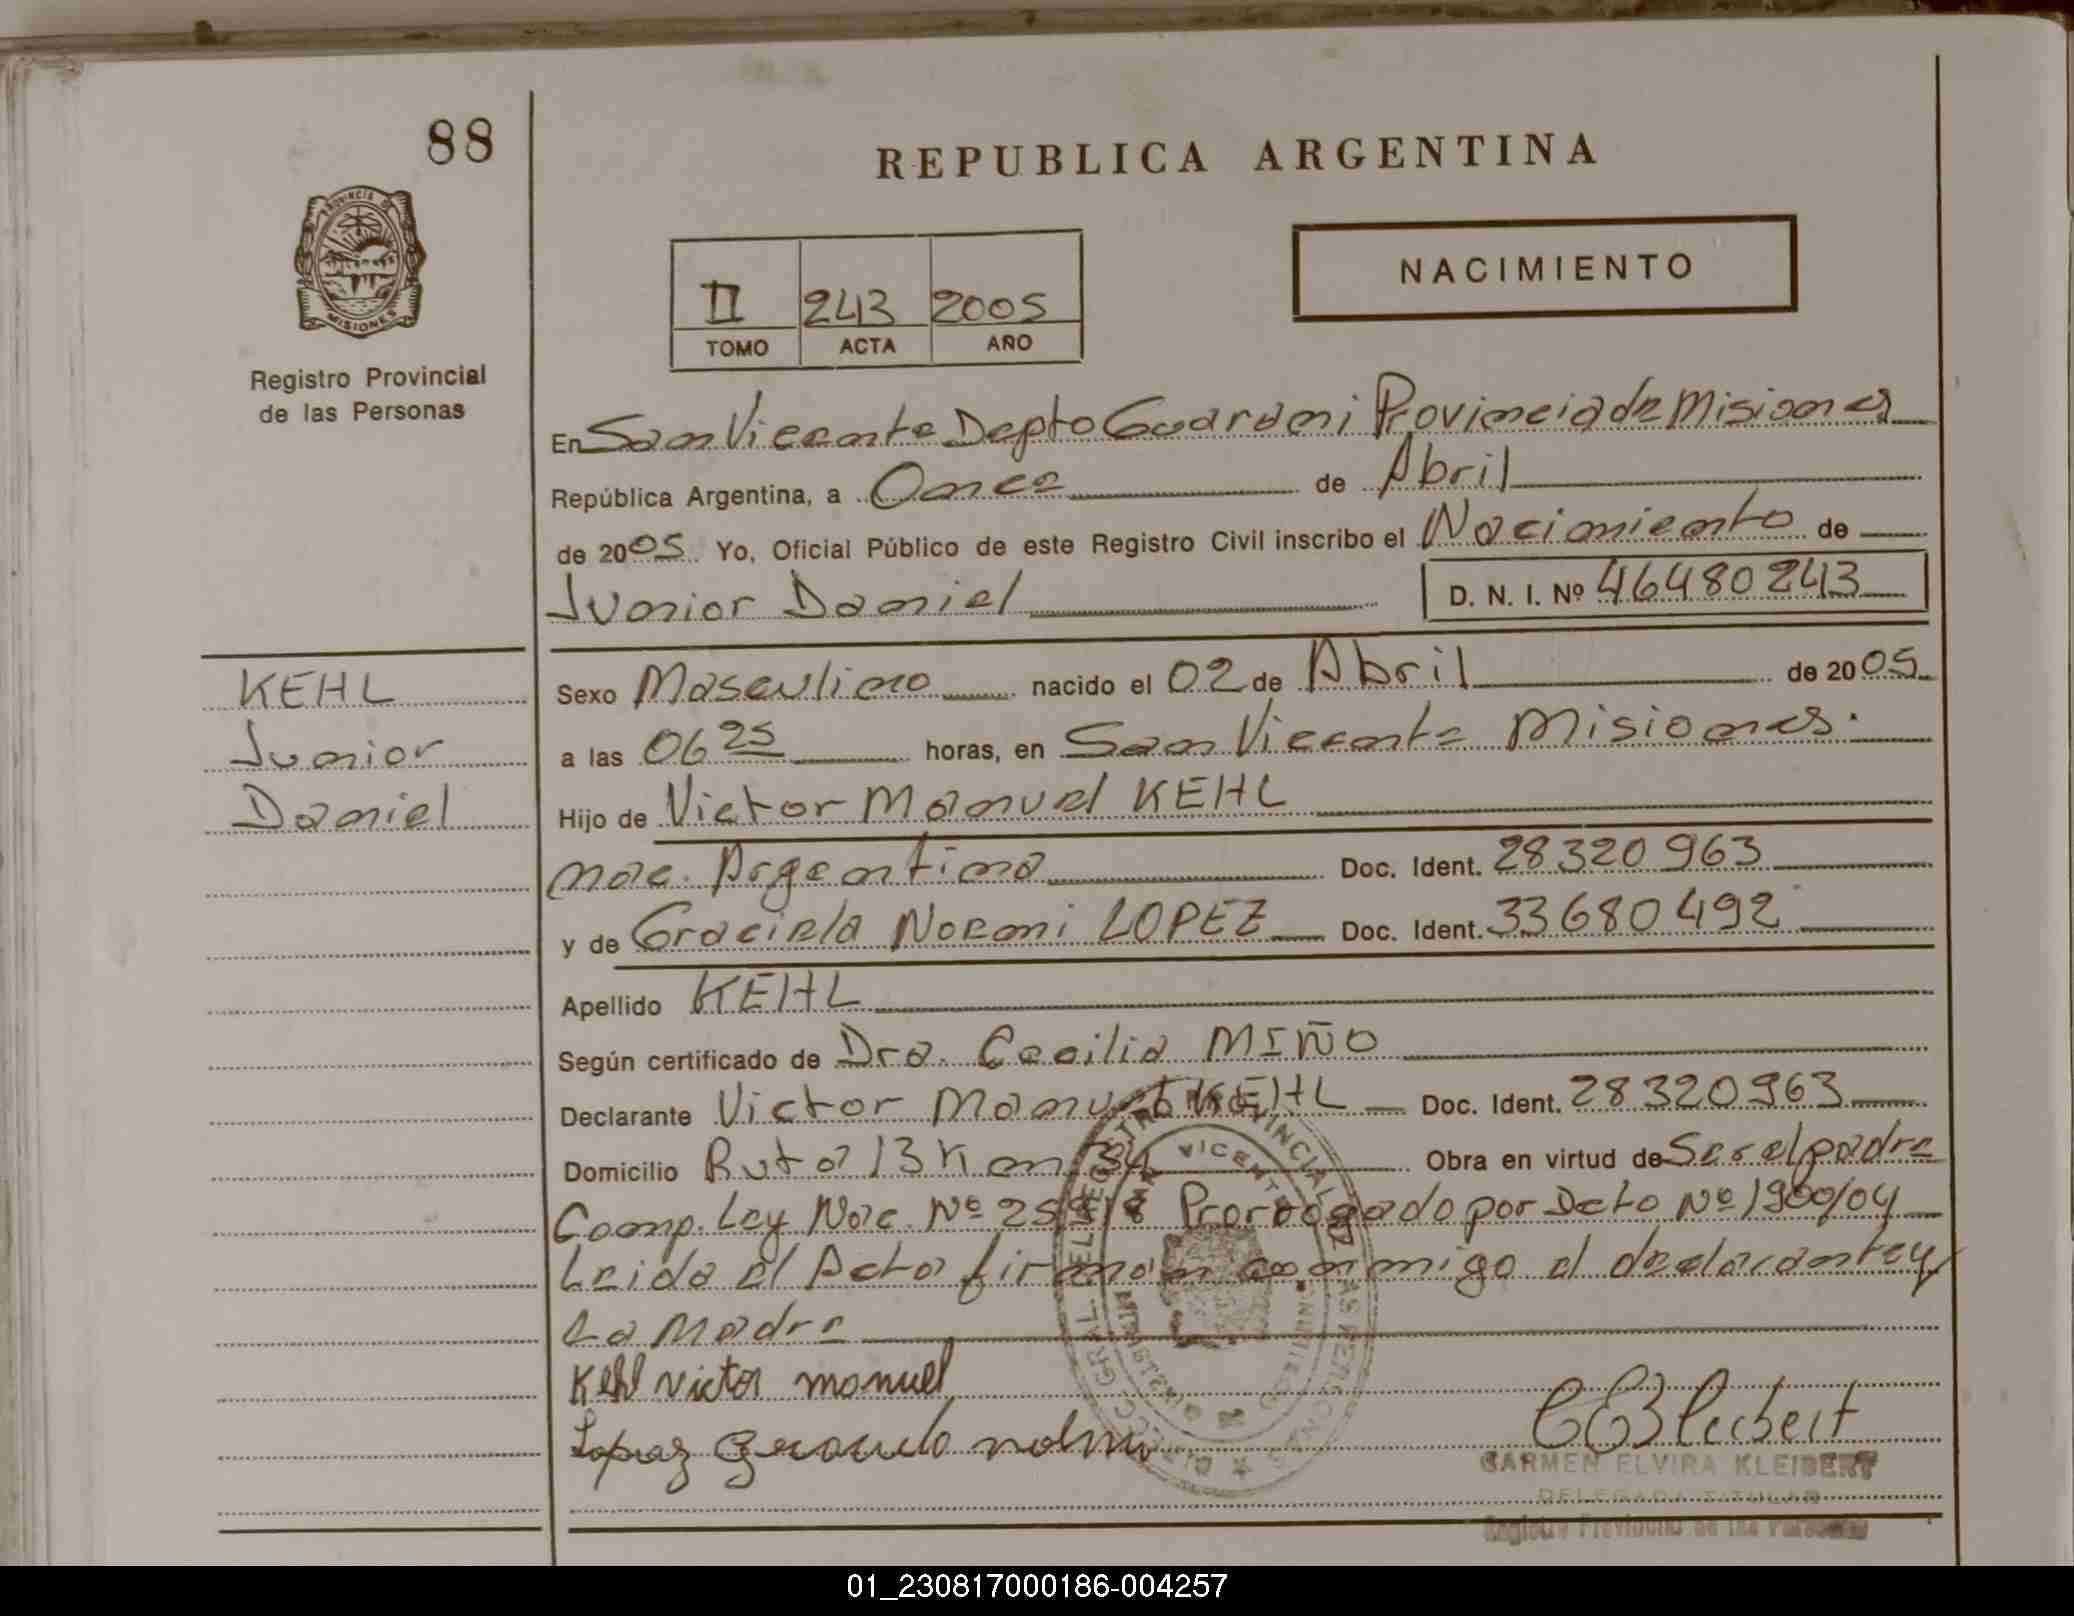 88
REPUBLICA ARGENTINA
PROVINCIA D
MISIONES
Registro Provincial
de las Personas
NACIMIENTO
II 243 2005
TOMO ACTA AÑO
En San Vicente Depto Guarani Provincia de Misiones
República Argentina, a Once de Abril
de 2005 Yo, Oficial Público de este Registro Civil inscribo el Nacimiento de
Junior Daniel D. N. I. Nº 46480243
KEHL
Junior
Daniel
Sexo Masculino nacido el 02 de Abril de 2005
a las 06 25 horas, en San Vicente Misiones.
Hijo de Victor Manuel KEHL
nac. Argentina Doc. Ident. 28320963
y de Graciela Noemi LOPEZ Doc. Ident. 33680492
Apellido KEHL
Según certificado de Dra. Cecilia MIÑO
Declarante Victor Manuel KEHL Doc. Ident. 28320963
Domicilio Ruta 13 Km 34 Obra en virtud de Ser el padre
Comp. Ley Nac. Nº 25818 Prorrogado por Dcto Nº 1900/04
Leida el Acta firman conmigo el declarante y
La Madre
Kehl victor manuel
Lopez
CEKleibert
CARMEN ELVIRA KLEIBERT
DELEGADA TITULAR
Registro Provincial de las Personas
01_230817000186-004257